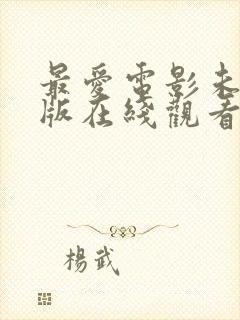 最愛電影未
版在綫觀看
楊武